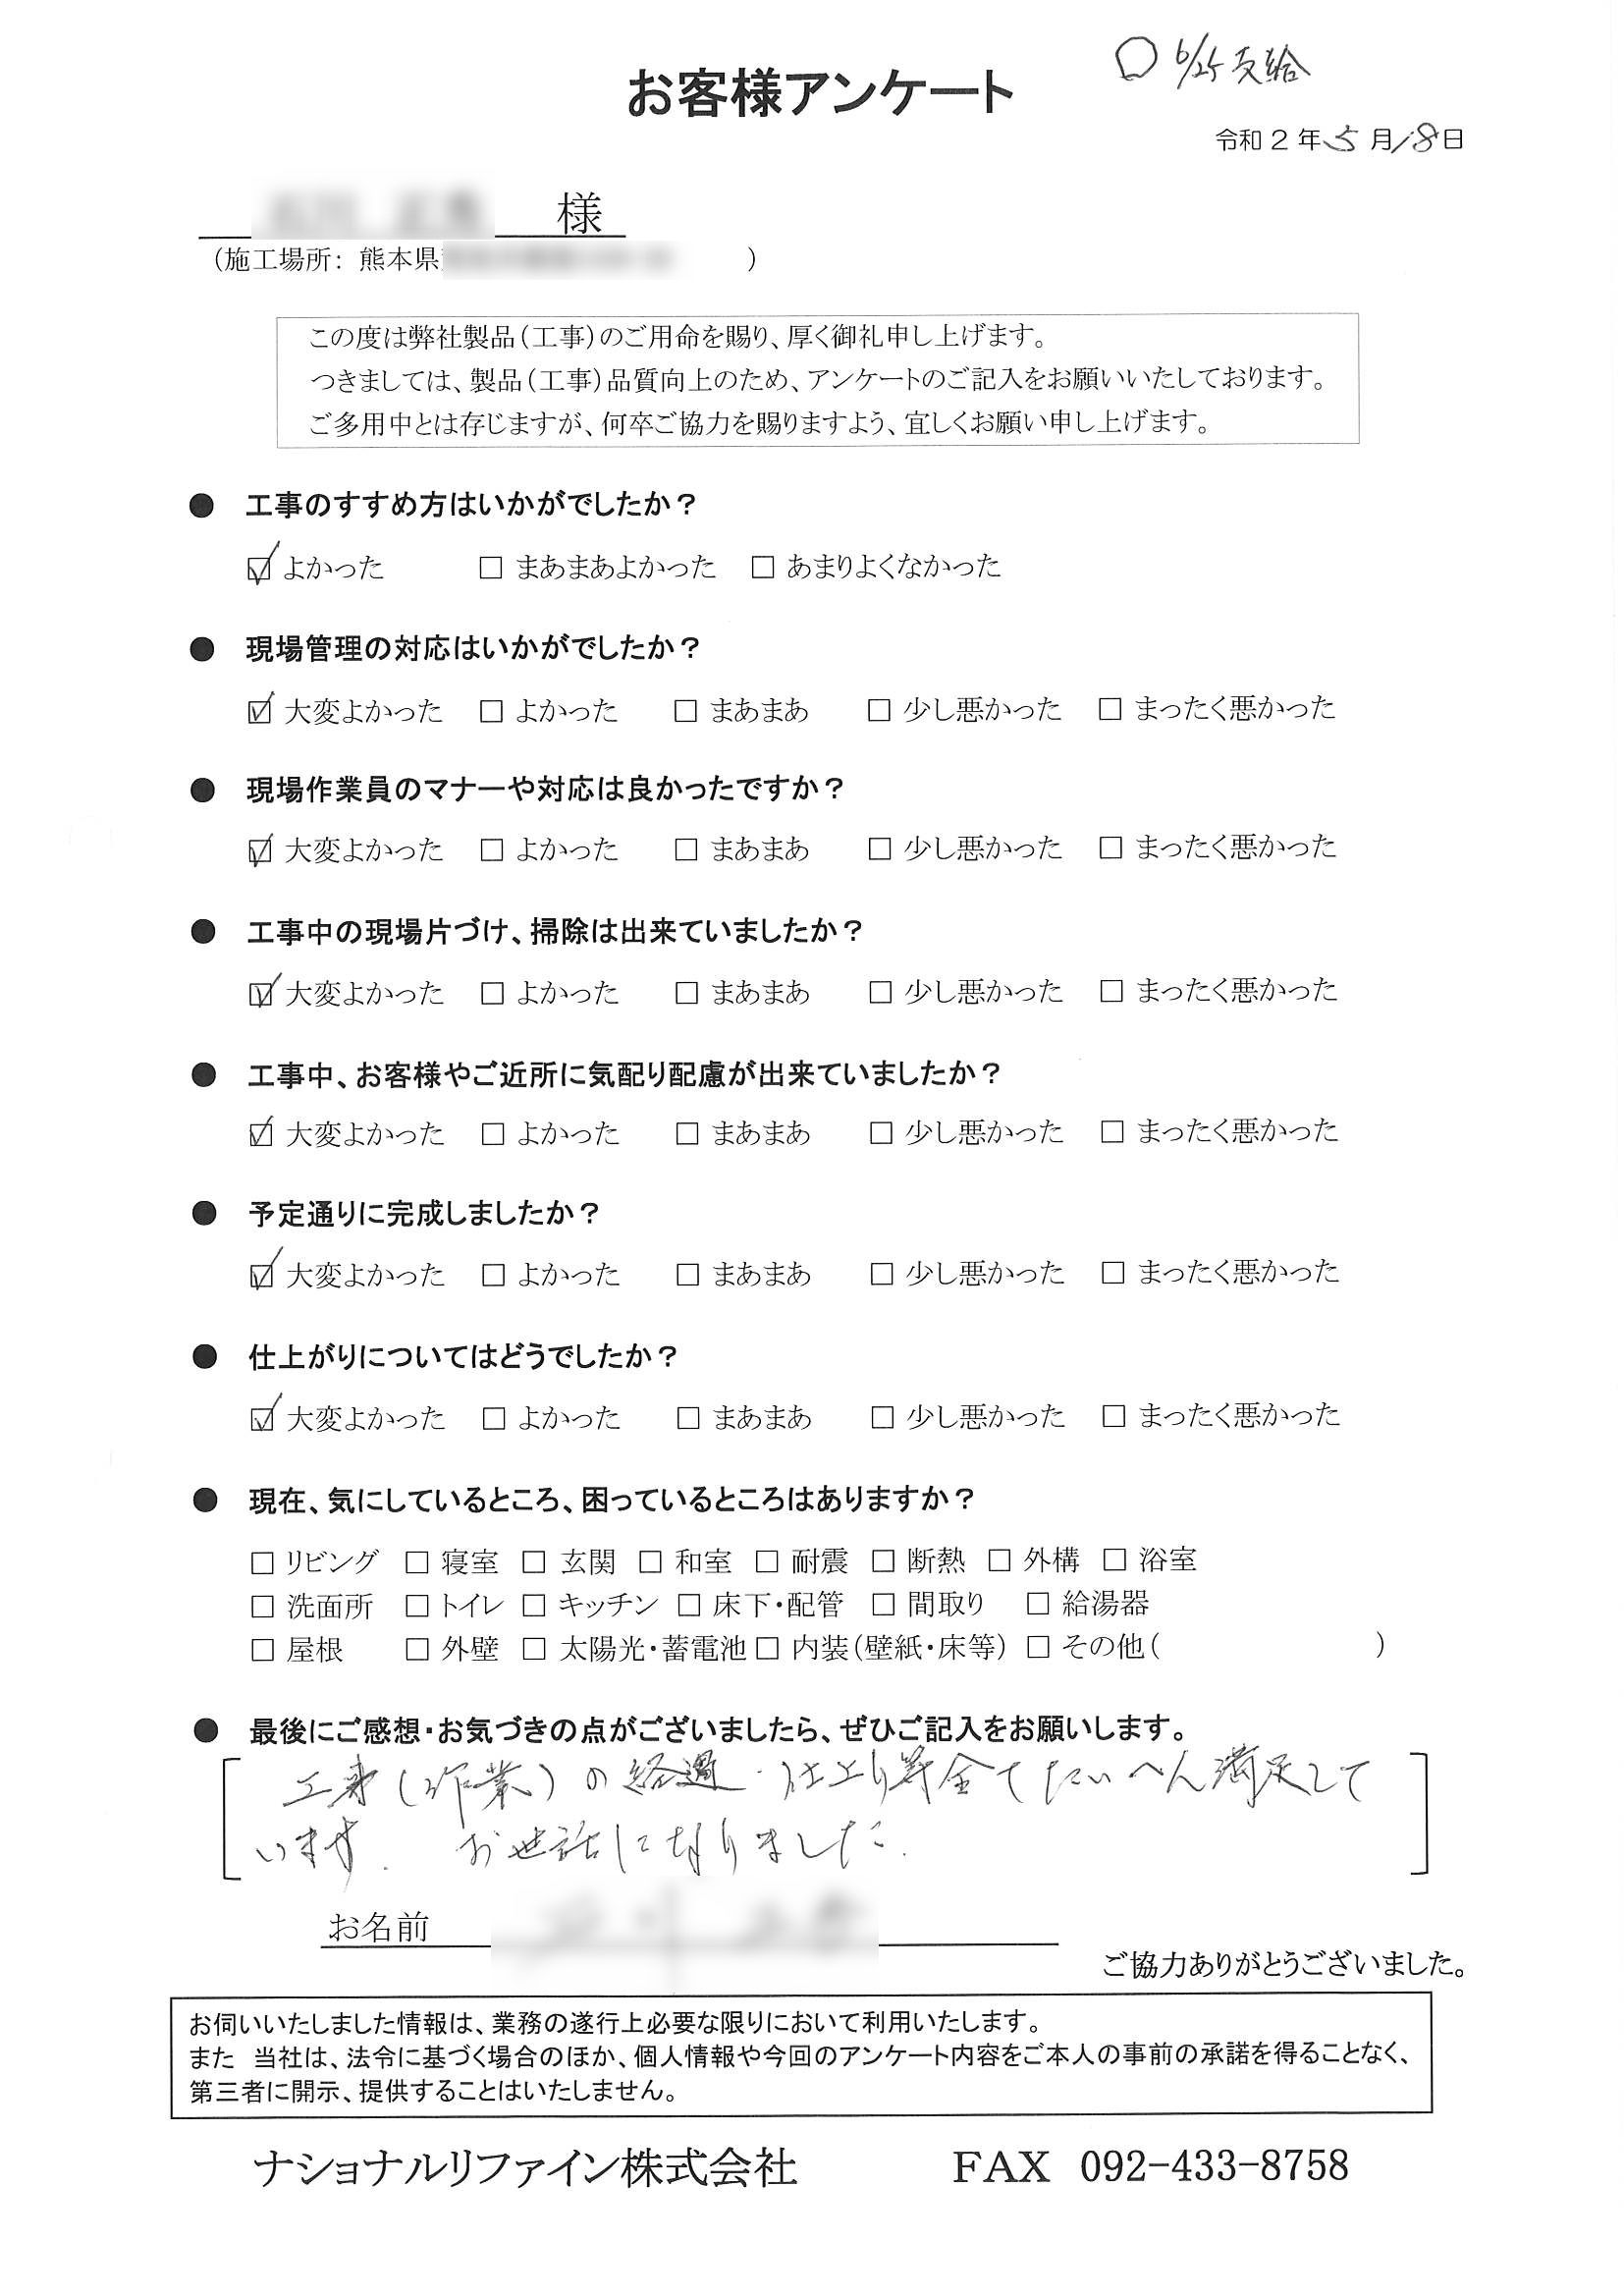 ○ 6/25 支給
お客様アンケート
令和2年5月18日
様
（施工場所： 熊本県 ）
この度は弊社製品（工事）のご用命を賜り、厚く御礼申し上げます。
つきましては、製品（工事）品質向上のため、アンケートのご記入をお願いいたしております。
ご多用中とは存じますが、何卒ご協力を賜りますよう、宜しくお願い申し上げます。
● 工事のすすめ方はいかがでしたか？
☑ よかった □ まあまあよかった □ あまりよくなかった
● 現場管理の対応はいかがでしたか？
☑ 大変よかった □ よかった □ まあまあ □ 少し悪かった □ まったく悪かった
● 現場作業員のマナーや対応は良かったですか？
☑ 大変よかった □ よかった □ まあまあ □ 少し悪かった □ まったく悪かった
● 工事中の現場片づけ、掃除は出来ていましたか？
☑ 大変よかった □ よかった □ まあまあ □ 少し悪かった □ まったく悪かった
● 工事中、お客様やご近所に気配り配慮が出来ていましたか？
☑ 大変よかった □ よかった □ まあまあ □ 少し悪かった □ まったく悪かった
● 予定通りに完成しましたか？
☑ 大変よかった □ よかった □ まあまあ □ 少し悪かった □ まったく悪かった
● 仕上がりについてはどうでしたか？
☑ 大変よかった □ よかった □ まあまあ □ 少し悪かった □ まったく悪かった
● 現在、気にしているところ、困っているところはありますか？
□ リビング □ 寝室 □ 玄関 □ 和室 □ 耐震 □ 断熱 □ 外構 □ 浴室
□ 洗面所 □ トイレ □ キッチン □ 床下・配管 □ 間取り □ 給湯器
□ 屋根 □ 外壁 □ 太陽光・蓄電池 □ 内装（壁紙・床等） □ その他（ ）
● 最後にご感想・お気づきの点がございましたら、ぜひご記入をお願いします。
工事（作業）の経過・仕上り等全てたいへん満足して
います. お世話になりました.
お名前
ご協力ありがとうございました。
お伺いいたしました情報は、業務の遂行上必要な限りにおいて利用いたします。
また 当社は、法令に基づく場合のほか、個人情報や今回のアンケート内容をご本人の事前の承諾を得ることなく、
第三者に開示、提供することはいたしません。
ナショナルリファイン株式会社 FAX 092-433-8758